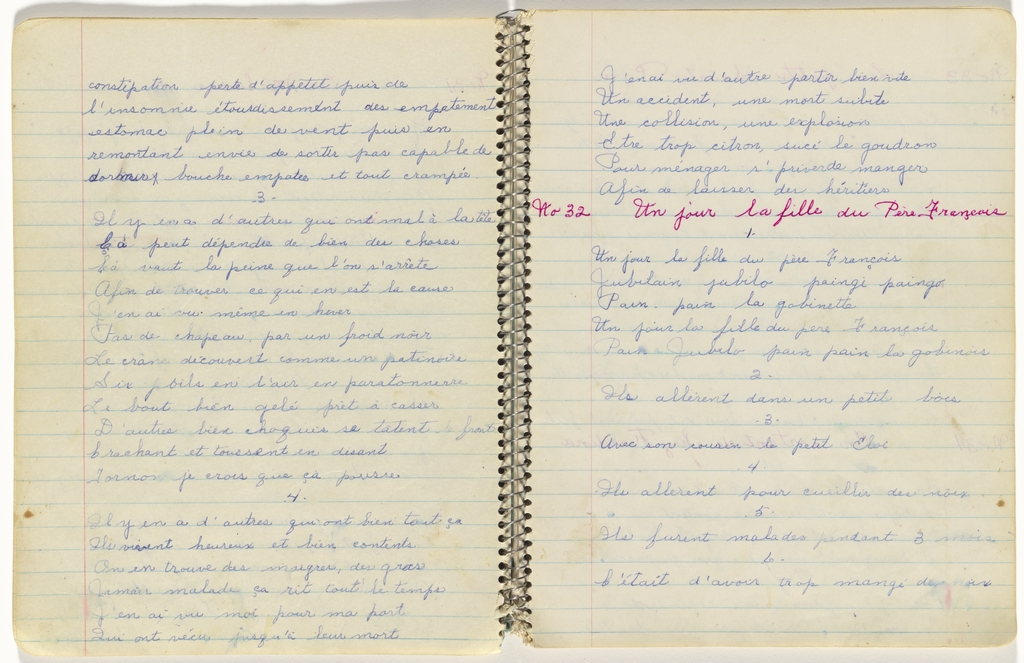 constipation perte d'appétit puis de
l'insomnie étourdissement des empatement
estomac plein de vent puis en
remontant envie de sortir pas capable de
dormir, bouche empatee et tout crampée
3.
Il y en a d'autres qui ont mal à la tête
Çà peut dépendre de bien des choses
Çà vaut la peine que l'on s'arrête
Afin de trouver ce qui en est la cause
J'en ai vu même en hiver
Pas de chapeau, par un froid noir
Le crâne découvert comme un patinoire
Six poils en l'air en paratonnerre
Le bout bien gelé prêt à casser
D'autres bien choqués se tâtent le front
Crachant et toussant en disant
je crois que çà pousse
4.
Il y en a d'autres qui ont bien tout ça
Ils vivent heureux et bien contents
On en trouve des maigres, des gras
Jamais malade ça rit tout le temps
J'en ai vu moi pour ma part
Qui ont vécu jusqu'à leur mort
J'en ai vu d'autre partir bien vite
Un accident, une mort subite
Une collision, une explosion
Etre trop citron, sucé le goudron
Pour ménager s'priver de manger
Afin de laisser des héritiers
No 32 Un jour la fille du Père François
1.
Un jour la fille du père François
Jubilain jubilo paingi paingo
Pain pain la gobinette
Un jour la fille du père François
Pain Jubilo pain pain la gobinois
2.
Ils allèrent dans un petit bois
.3.
Avec son cousin le petit Eloi
4.
Ils allèrent pour cueillir des nois
5.
Ils furent malades pendant 3 mois
6.
C'était d'avoir trop mangé de